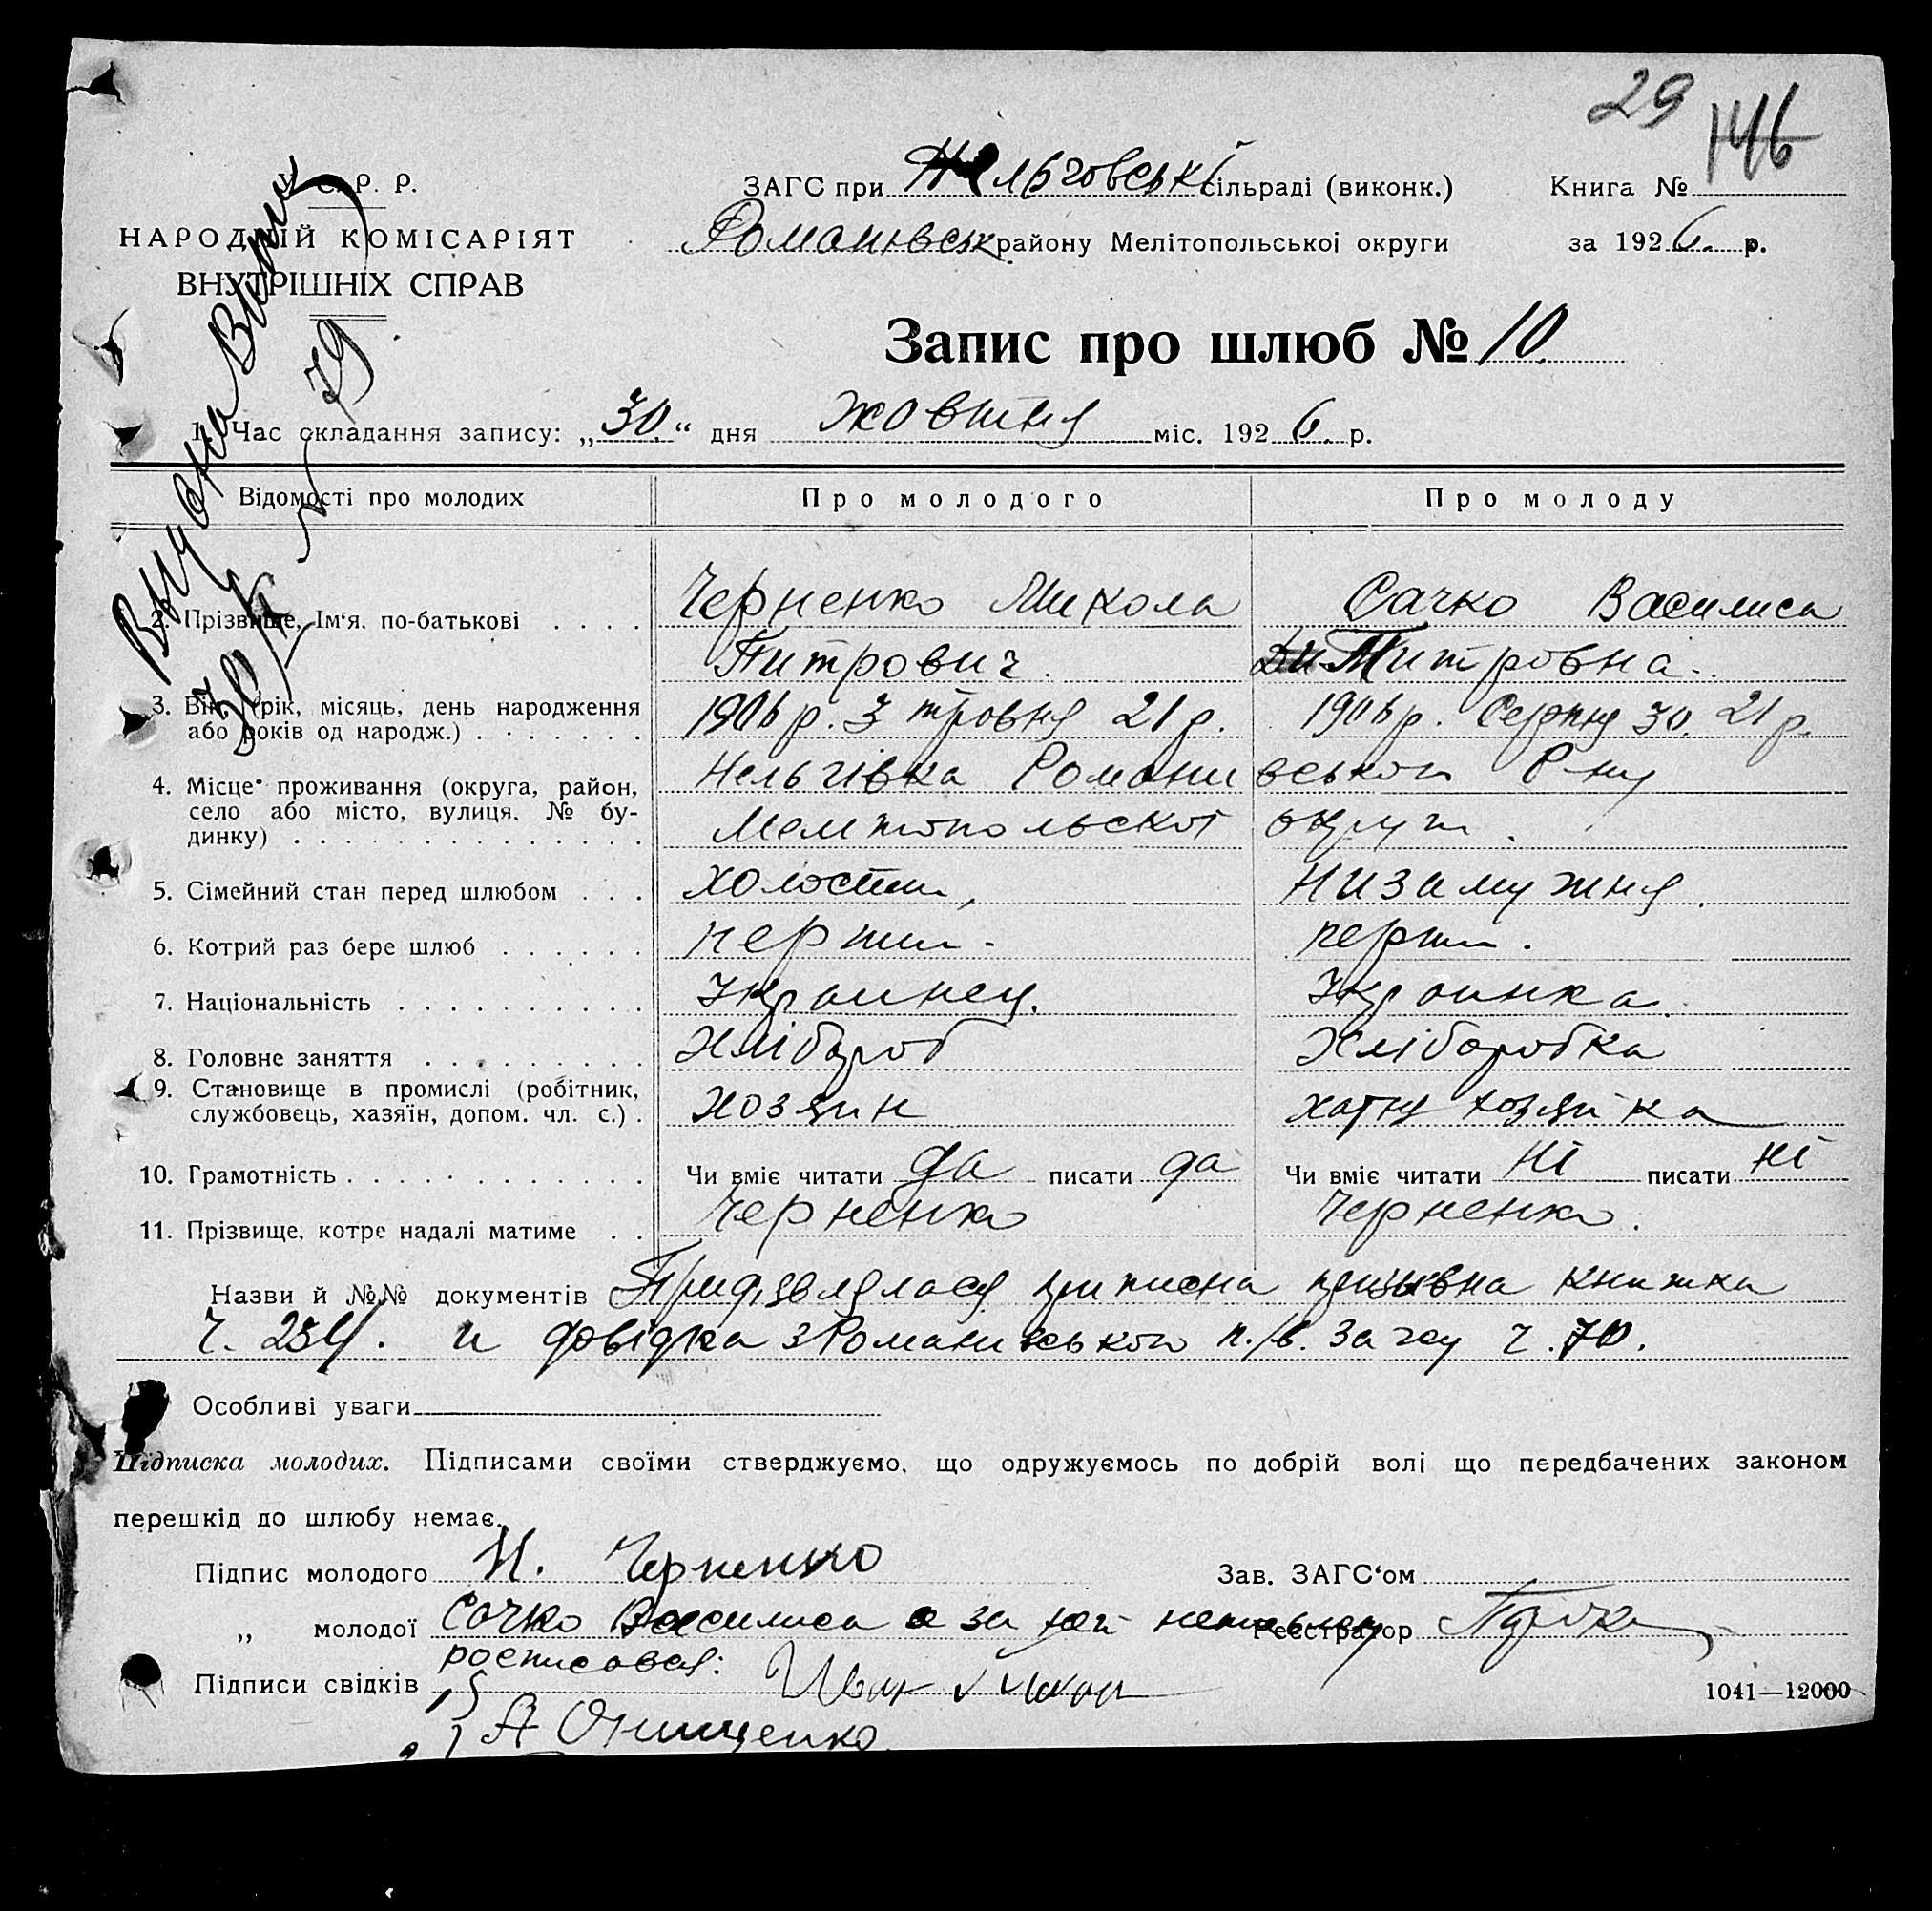 29 146
У. С. Р. Р.
НАРОДНІЙ КОМІСАРІЯТ
ВНУТРІШНІХ СПРАВ
ЗАГС при Нельговські сільраді (виконк.)
Романівськ. району Мелітопольської округи
Книга №
за 1926. р.
Запис про шлюб № 10.
Видана Випис
30/X № 79
1. Час складання запису: „30.“ дня жовтня міс. 1926. р.
Відомості про молодих Про молодого Про молоду
2. Прізвище, Ім‘я, по-батькові . . . . Черненко Микола Сачко Василиса
Питрович. Питровна.
3. Вік, (рік, місяць, день народження 1906 р. 3 травня 21 р. 1906 р. Серпня 30. 21 р.
або років од народж.) . . . . . . .
4. Місце проживання (округа, район, Нельгівка Романивськои Р-ну
село або місто, вулиця, № бу- Мелитопольскоі округи.
динку) . . . . . . . . . . . . . .
5. Сімейний стан перед шлюбом . . . холостии, Низамужня.
6. Котрий раз бере шлюб . . . . . . перши. перши.
7. Національність . . . . . . . . . . Украинец. Украинка.
8. Головне заняття . . . . . . . . . Хлібороб Хліборобка
9. Становище в промислі (робітник, Хозяин хатня хозяйка
службовець, хазяїн, допом. чл. с.) .
10. Грамотність . . . . . . . . . . . . . Чи вміє читати да писати да Чи вміє читати Ні писати Ні
11. Прізвище, котре надалі матиме . . Черненко Черненко.
Назви й №№ документів Придявлялася приписна призивна книжка
ч. 254. и довідка з Романивського п./в. загсу ч. 70.
Особливі уваги
Підписка молодих. Підписами своїми стверджуємо, що одружуємось по добрій волі що передбачених законом
перешкід до шлюбу немає.
Підпис молодого Н. Черненко Зав. ЗАГС‘ом
„ молодої Сачко Василиса а за Реєстратор
росписовся:
Підписи свідків
А Онищенко
1041—12000